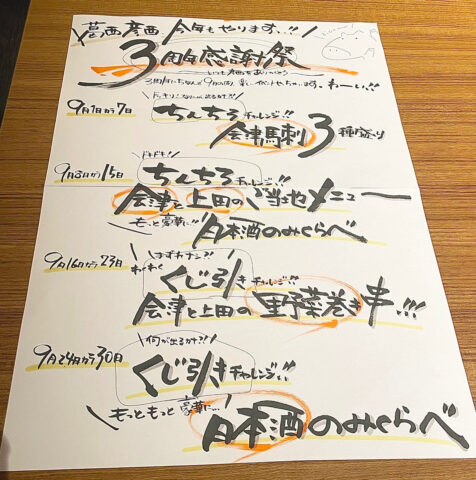 葛西彦酉 今年もやります...!!
3周年感謝祭
いつも彦酉をありがとう
3周年にちなんで9月の1ヶ月、楽しくやらせちゃいます。わーい!!
9月1日から7日
ちんちろチャレンジ!!
会津馬刺3種盛り
9月8日から15日
ドキドキ!
ちんちろチャレンジ!!
会津と上田のご当地メニュー
もっと豪華に!!
日本酒のみくらべ
9月16日から23日
わくわく
くじ引きチャレンジ!!
会津と上田の野菜巻き串!!!
9月24日から30日
何が出るか?!
くじ引きチャレンジ!!
もっともっと豪華に...
日本酒のみくらべ